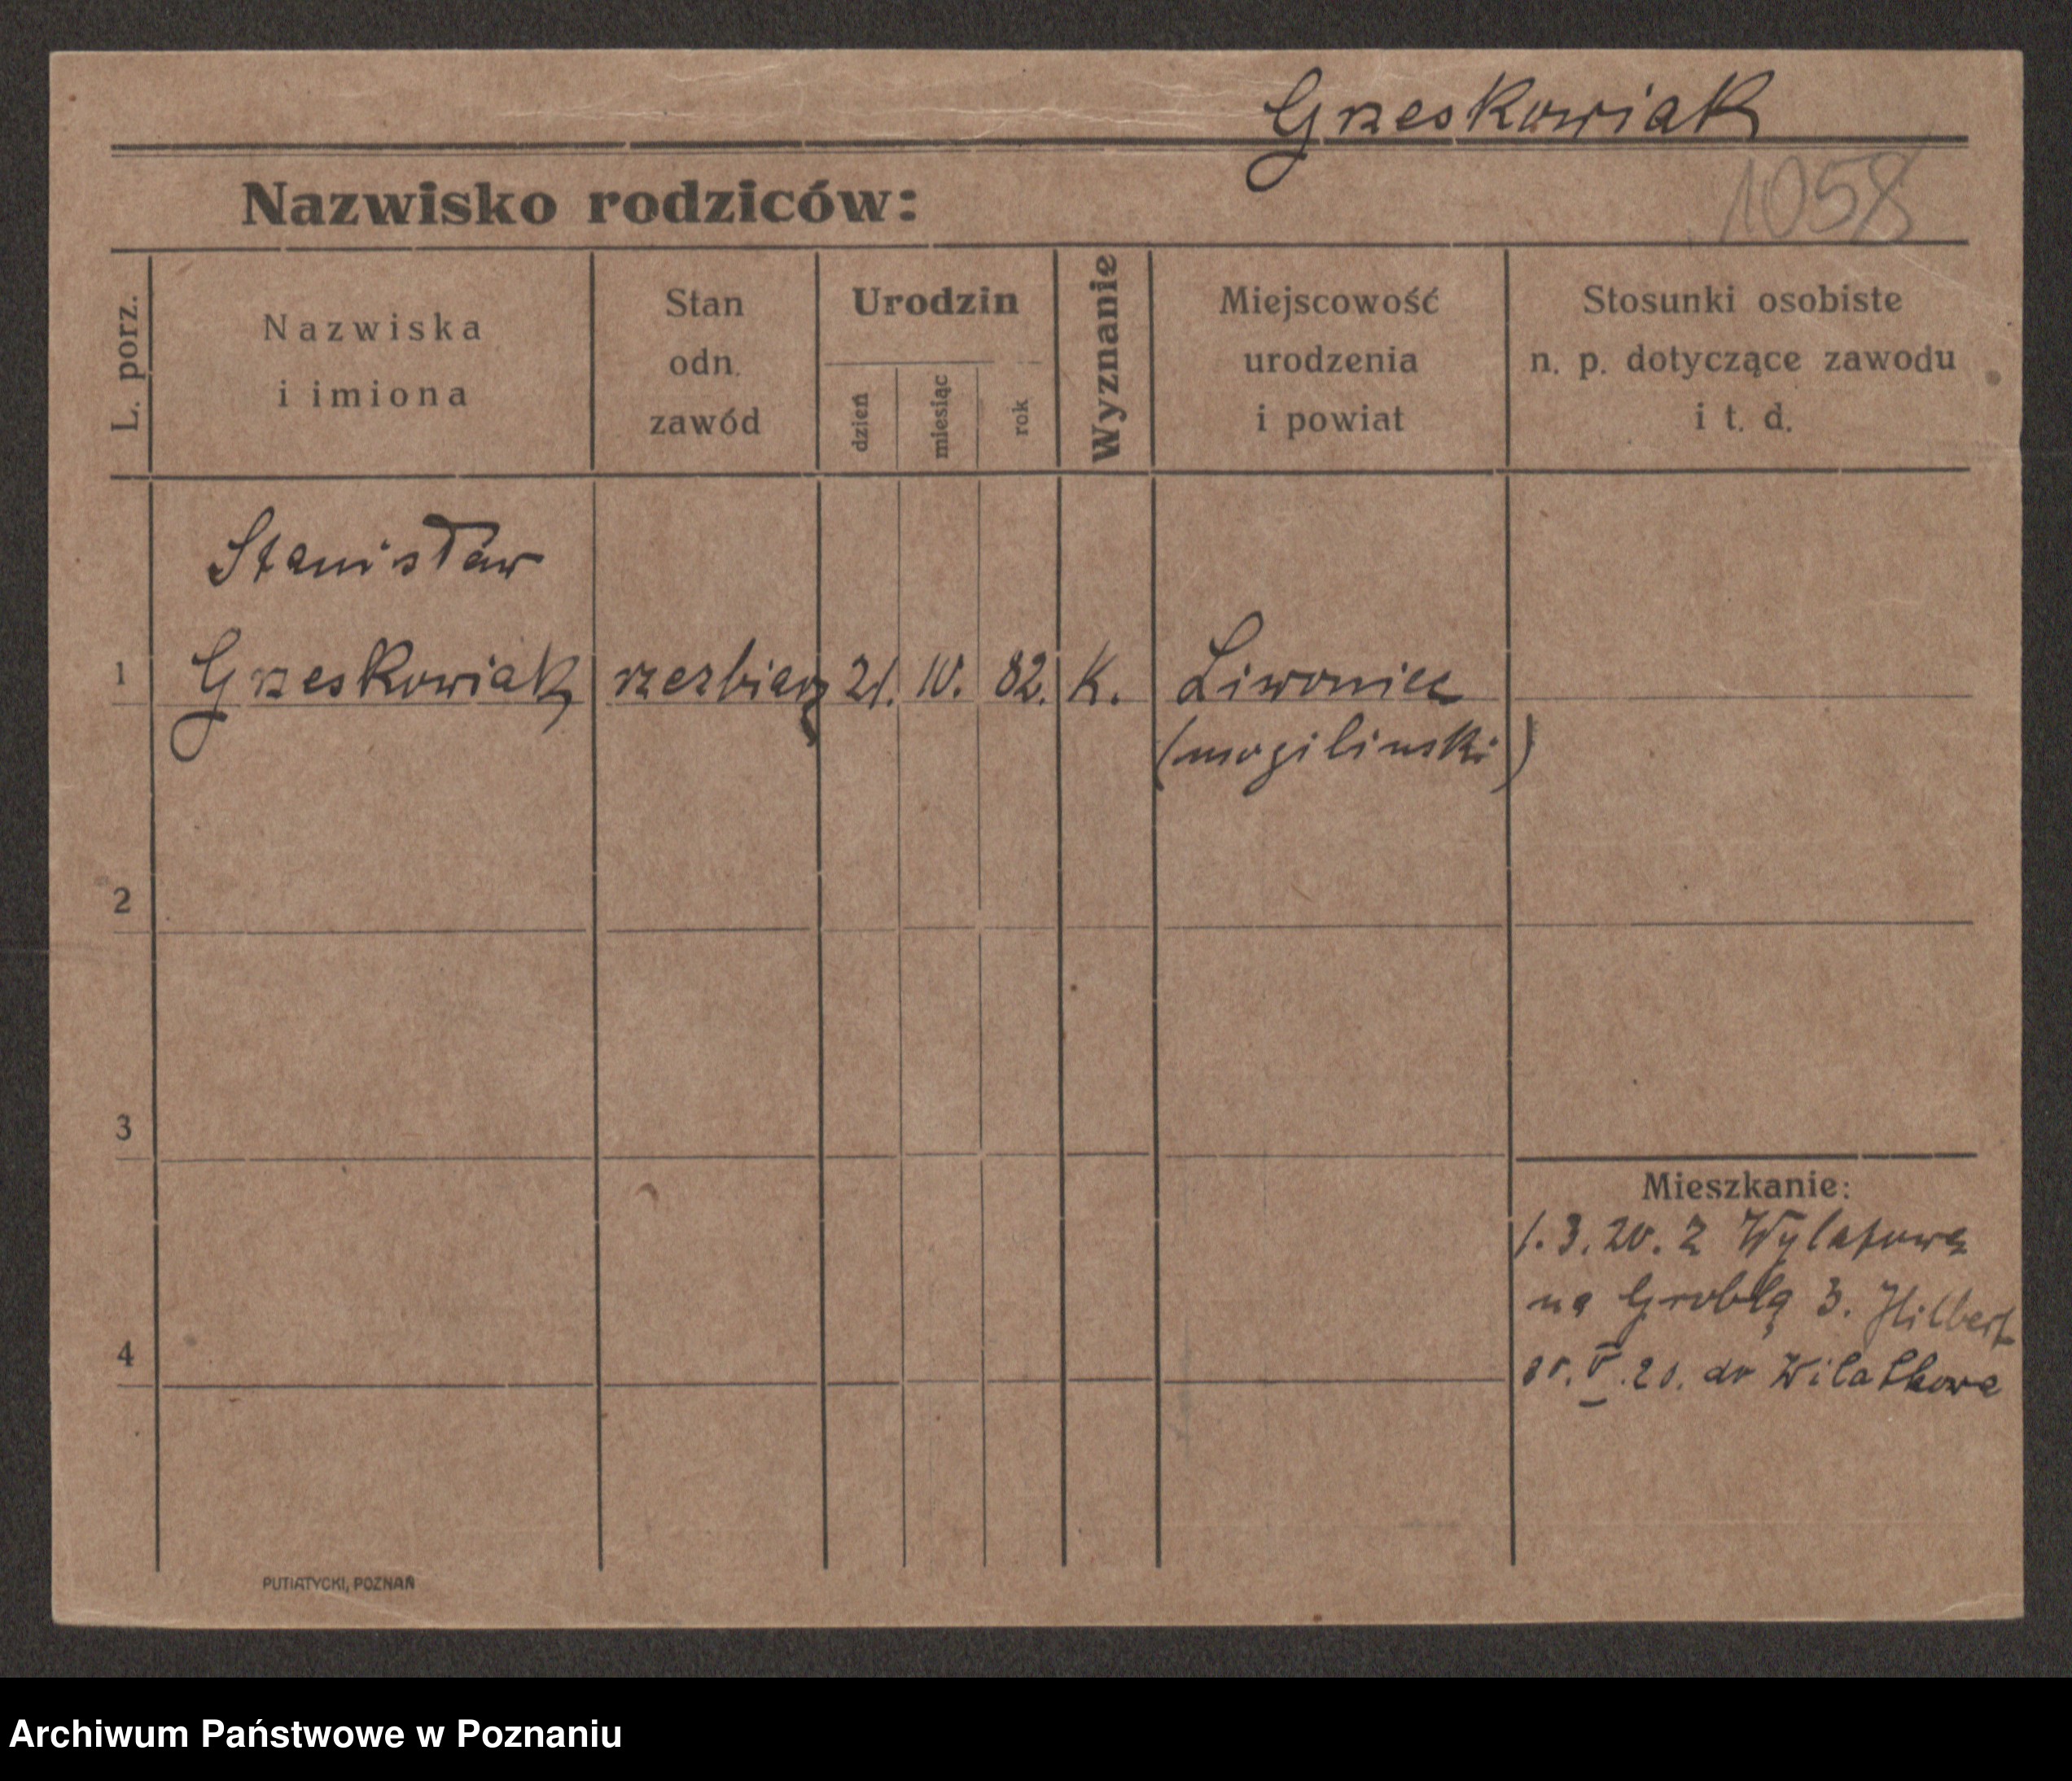 Grzeskowiak
1058
Nazwisko rodziców:
L. porz.
Nazwiska
i imiona
Stan
odn.
zawód
Urodzin
dzień
miesiąc
rok
Wyznanie
Miejscowość
urodzenia
i powiat
Stosunki osobiste
n. p. dotyczące zawodu
i t. d.
Stanisław
1 Grzeskowiak rzezbiarz 21. IV. 82. K. Liwoniec
(mogilinski)
2
3
Mieszkanie:
1. 3. 20. z Wylatowa
na Groblą 3. Hilbert
4
V. 20. do
PUTIATYCKI, POZNAŃ
Archiwum Państwowe w Poznaniu